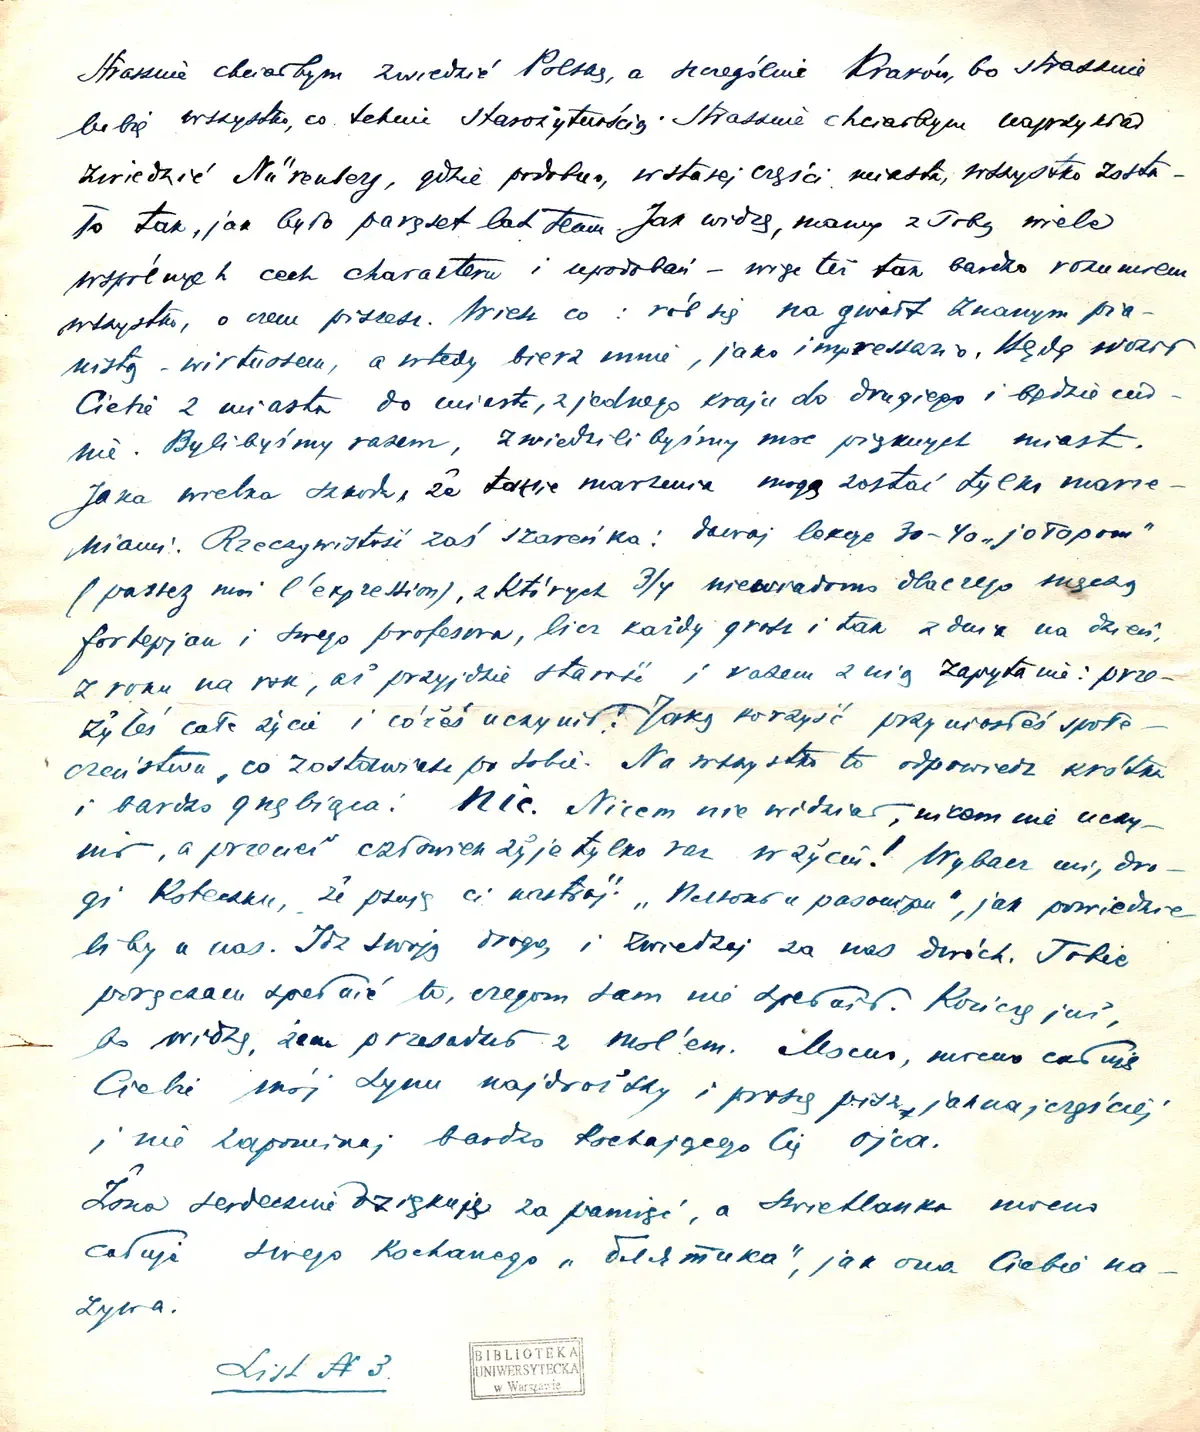 Strasznie chciałbym zwiedzić Polskę, a szczególnie Kraków, bo strasznie
lubię wszystko, co tchnie starożytnością. Strasznie chciałbym naprzykład
zwiedzić Nürenberg, gdzie podobno, w starej części miasta, wszystko zosta-
ło tak, jak było paręset lat temu. Jak widzę, mamy z Tobą wiele
wspólnych cech charakteru i upodobań – więc też tak bardzo rozumiem
wszystko, o czem piszesz. Wiesz co: rób się na gwałt znanym pia-
nistą-wirtuozem, a wtedy bierz mnie, jako impressario. Będę woził
Ciebie z miasta do miasta, z jednego kraju do drugiego i będzie cud-
nie. Bylibyśmy razem, zwiedzilibyśmy moc pięknych miast.
Jaka wielka szkoda, że takie marzenia mogą zostać tylko marze-
niami. Rzeczywistość zaś szareńka: dawaj lekcje 30-40 „jołopom"
(passez moi l'expression), z których 3/4 niewiadomo dlaczego męczą
fortepjan i swego profesora, licz każdy grosz i tak z dnia na dzień,
z roku na rok, aż przyjdzie starość i razem z nią zapytanie: prze-
żyłeś całe życie i cóżeś uczynił? Jaką korzyść przyniosłeś społe-
czeństwu, co zostawiasz po sobie. Na wszystko to odpowiedz krótka
i bardzo gnębiąca: Nic. Niczem nie widział, nie uczy-
nił, a przecież człowiek żyje tylko raz w życiu! Wybacz mi, dro-
gi Koteczku, że psuję ci nastrój. „ ", jak powiedzie-
liby u nas. Idź swoją drogą i zwiedzaj za nas dwóch. Tobie
poręczam spełnić to, czegom sam nie spełnił. Kończę już,
bo widzę, żem przesadził z mol'em. Mocno, mocno całuję
Ciebie mój synu najdroższy i proszę pisz, jaknajczęściej
i nie zapominaj bardzo kochającego Cię ojca.
Żona serdecznie dziękuję za pamięć, a Swietlanka mocno
całuje swego kochanego „ ", jak ona Ciebie na-
zywa.
List № 3.
BIBLIOTEKA
UNIWERSYTECKA
w Warszawie